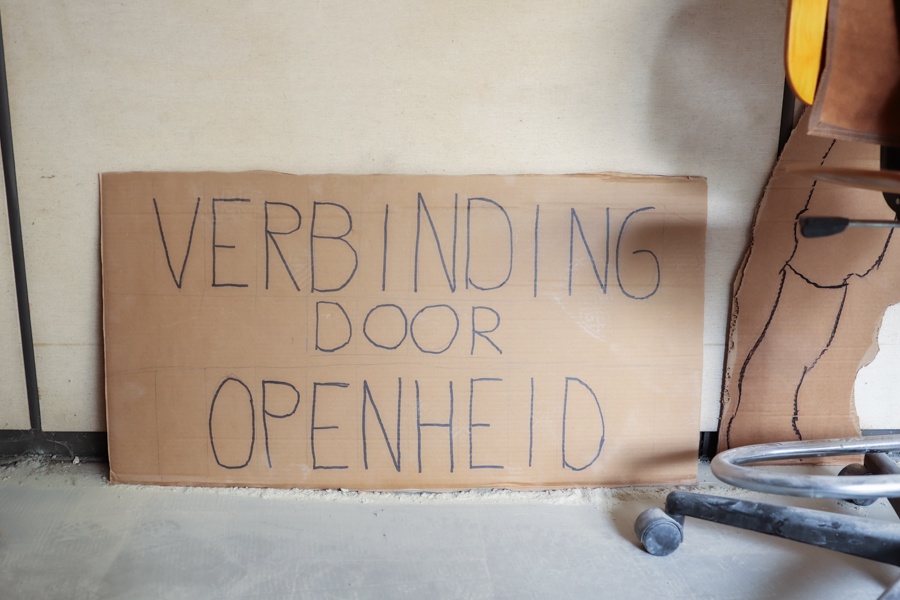 VERBINDING
DOOR
OPENHEID